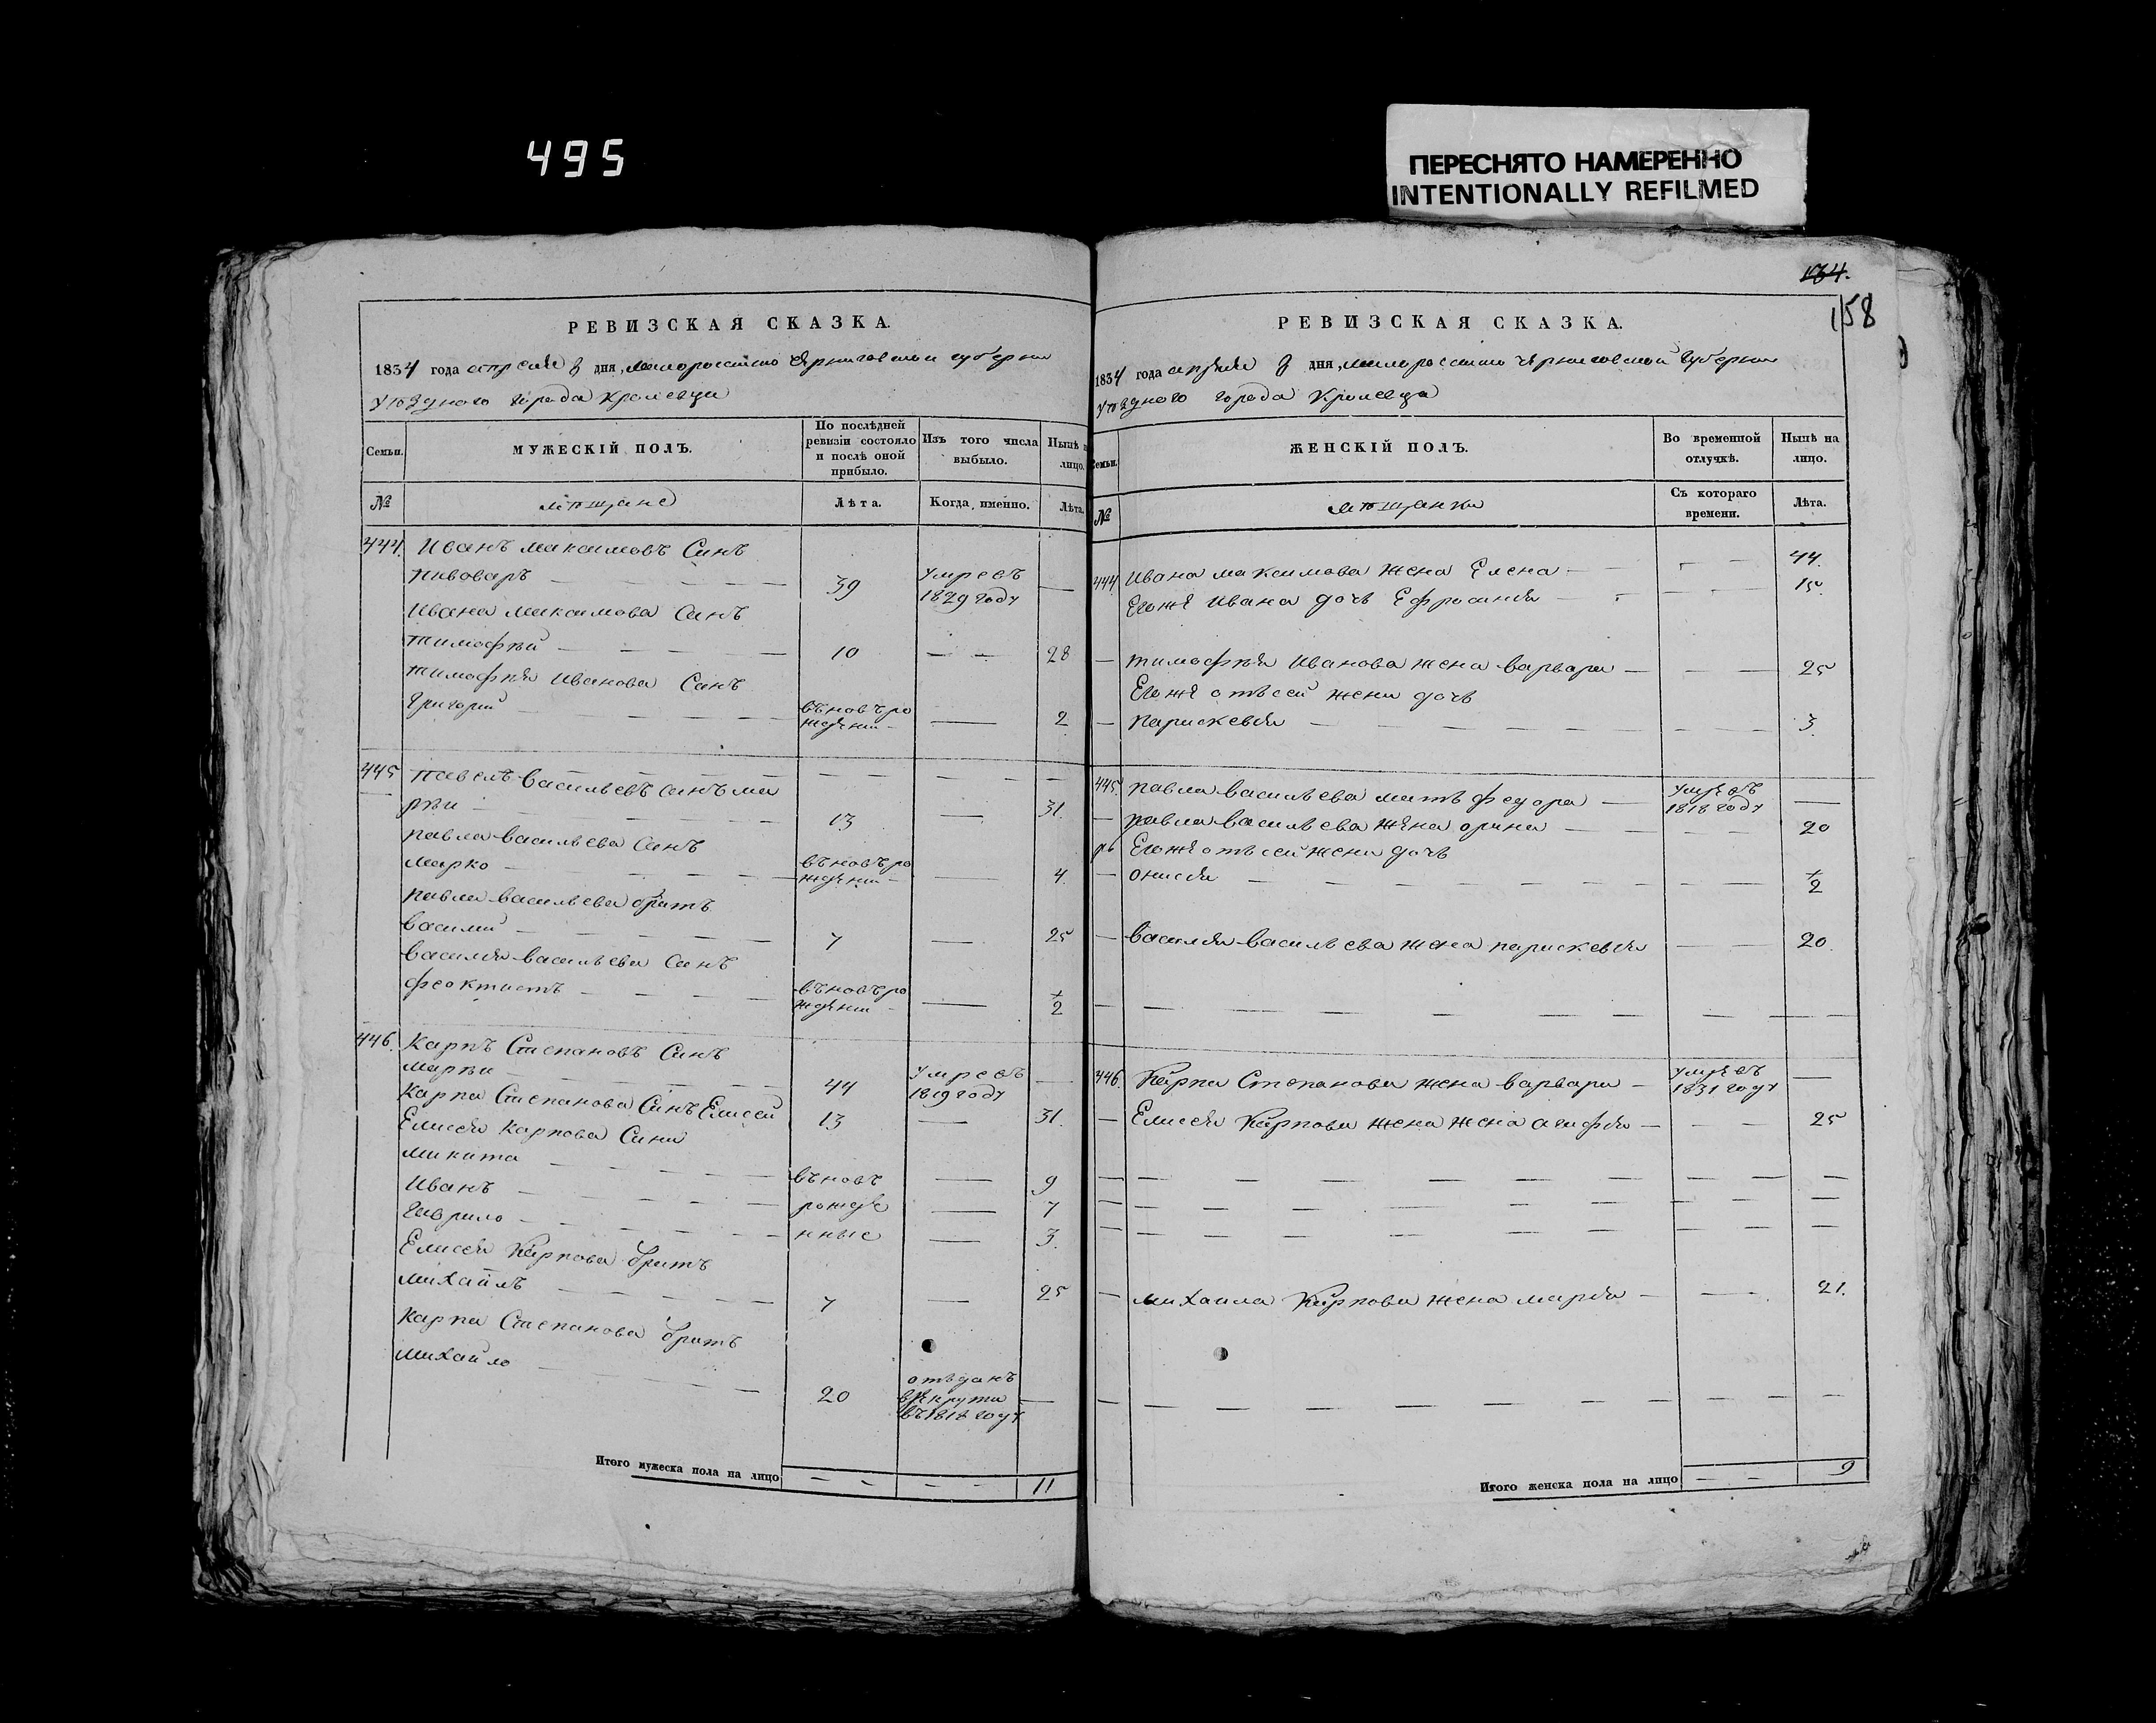 495
ПЕРЕСНЯТО НАМЕРЕННО
INTENTIONALLY REFILMED
РЕВИЗСКАЯ СКАЗКА.
1834 года апреля дня, малороссийско Черниговской губернии
уѣздного города Кролевца
Семьи.
МУЖЕСКІЙ ПОЛЪ.
По послѣдней ревизіи состояло и послѣ оной прибыло.
Изъ того числа выбыло.
Нынѣ на лицо.
№
мѣщане
Лѣта.
Когда именно.
Лѣта.
444. Иванъ максимовъ Синъ
пивоваръ — 39 умревъ 1829 году —
Ивана максимова Синъ
тимофѣй — 10 — — 28
тимофѣя Иванова Синъ
Григорий — въновъ рождении — 2
445 павелъ васильевъ синъ ма
рѣи — 13 — 31.
павла васильева Синъ
марко — въновъ рождении — 4.
павла васильева братъ
василий — 7 — 25
василия васильева Синъ
феоктистъ — въновъ рождении — 1/2
446. Карпъ Степановъ Синъ
марѣи — 44 умревъ 1819 году —
Карпа Степанова Синъ Елисей 13 — 31.
Елисея Карпова Сини
микита — въновъ — 9
Иванъ — рожде — 7
Гаврило — нные — 3.
Елисея Карпова братъ
михайлъ — 7 — 25
Карпа Степанова братъ
михайло — 20 отъданъ врекруты въ 1818 году —
Итого мужеска пола на лицо — — — — 11
134.
158
РЕВИЗСКАЯ СКАЗКА.
1834 года апреля дня, малороссийско черниговской губернии
уѣздного города Кролевца
Семьи.
ЖЕНСКІЙ ПОЛЪ.
Во временной отлучкѣ.
Нынѣ на лицо.
№
мѣщанки
Съ котораго времени.
Лѣта.
444 Ивана максимова жена Елена — — 44.
Егоже Ивана дочь Ефросиния — — 15.
— тимофѣя Иванова жена варвара — — — 25
Егоже отъсей жени дочь
— парискевия — — 3
445. павла васильева мать федора — умревъ 1818 году —
— павла васильева жена орина — — 20
Егоже отъсей жени дочь
— онисия — — 1/2
— василия васильева жена парискевия — — 20.
446. Карпа Степанова жена варвара — умревъ 1831 году —
— Елисея Карпова жена жена агафия — — — 25
— михаила Карпова жена мария — — 21.
Итого женска пола на лицо — — 9